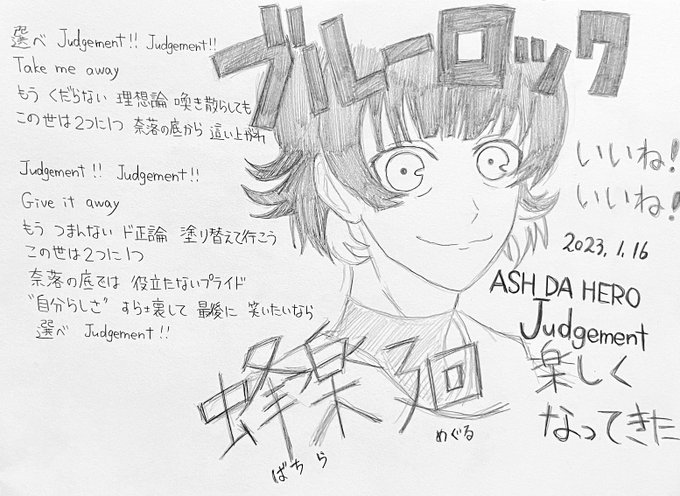 選べ Judgement!! Judgement!!
Take me away
もう くだらない 理想論 喚き散らしても
この世は2つに1つ 奈落の底から 這い上がれ
Judgement!! Judgement!!
Give it away
もう つまんない ド正論 塗り替えて行こう
この世は2つに1つ
奈落の底では 役立たないプライド
"自分らしさ" すら壊して 最後に 笑いたいなら
選べ Judgement!!
ブルーロック
いいね!
いいね!
2023.1.16
ASH DA HERO
Judgement
楽しく
なってきた
蜂楽 廻
ばちら めぐる